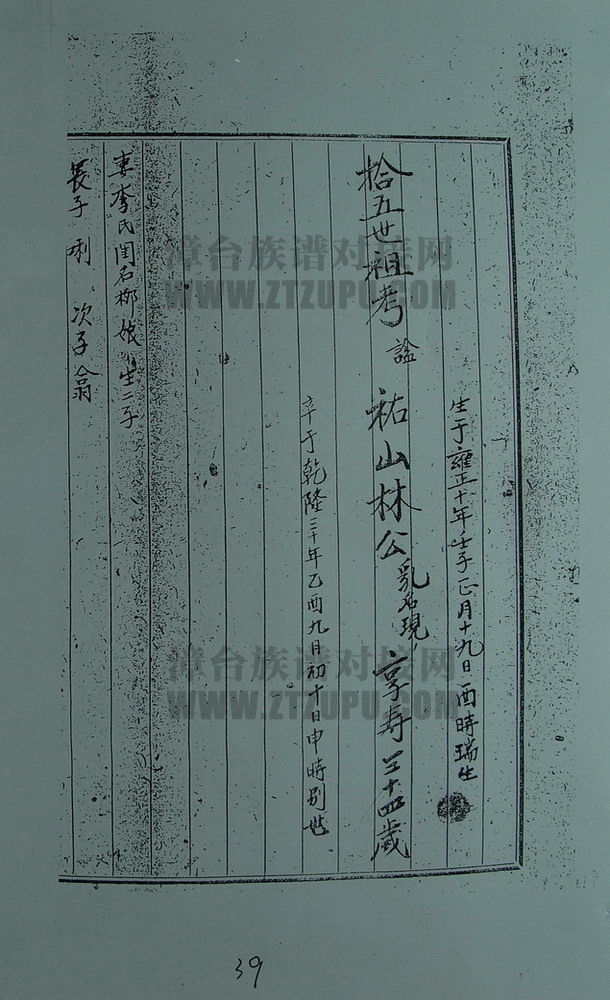 生于雍正十年壬子正月十九日酉時瑞生
拾五世祖考 諡 祐山林公 乳名現 享寿三十四歲
卒于乾隆三十年乙酉九月初十日申時別世
妻李氏閨名柳娘生二子
長子唎 次子翁
漳台族谱对接网
WWW.ZTZUPU.COM
漳台族谱对接网
WWW.ZTZUPU.COM
39